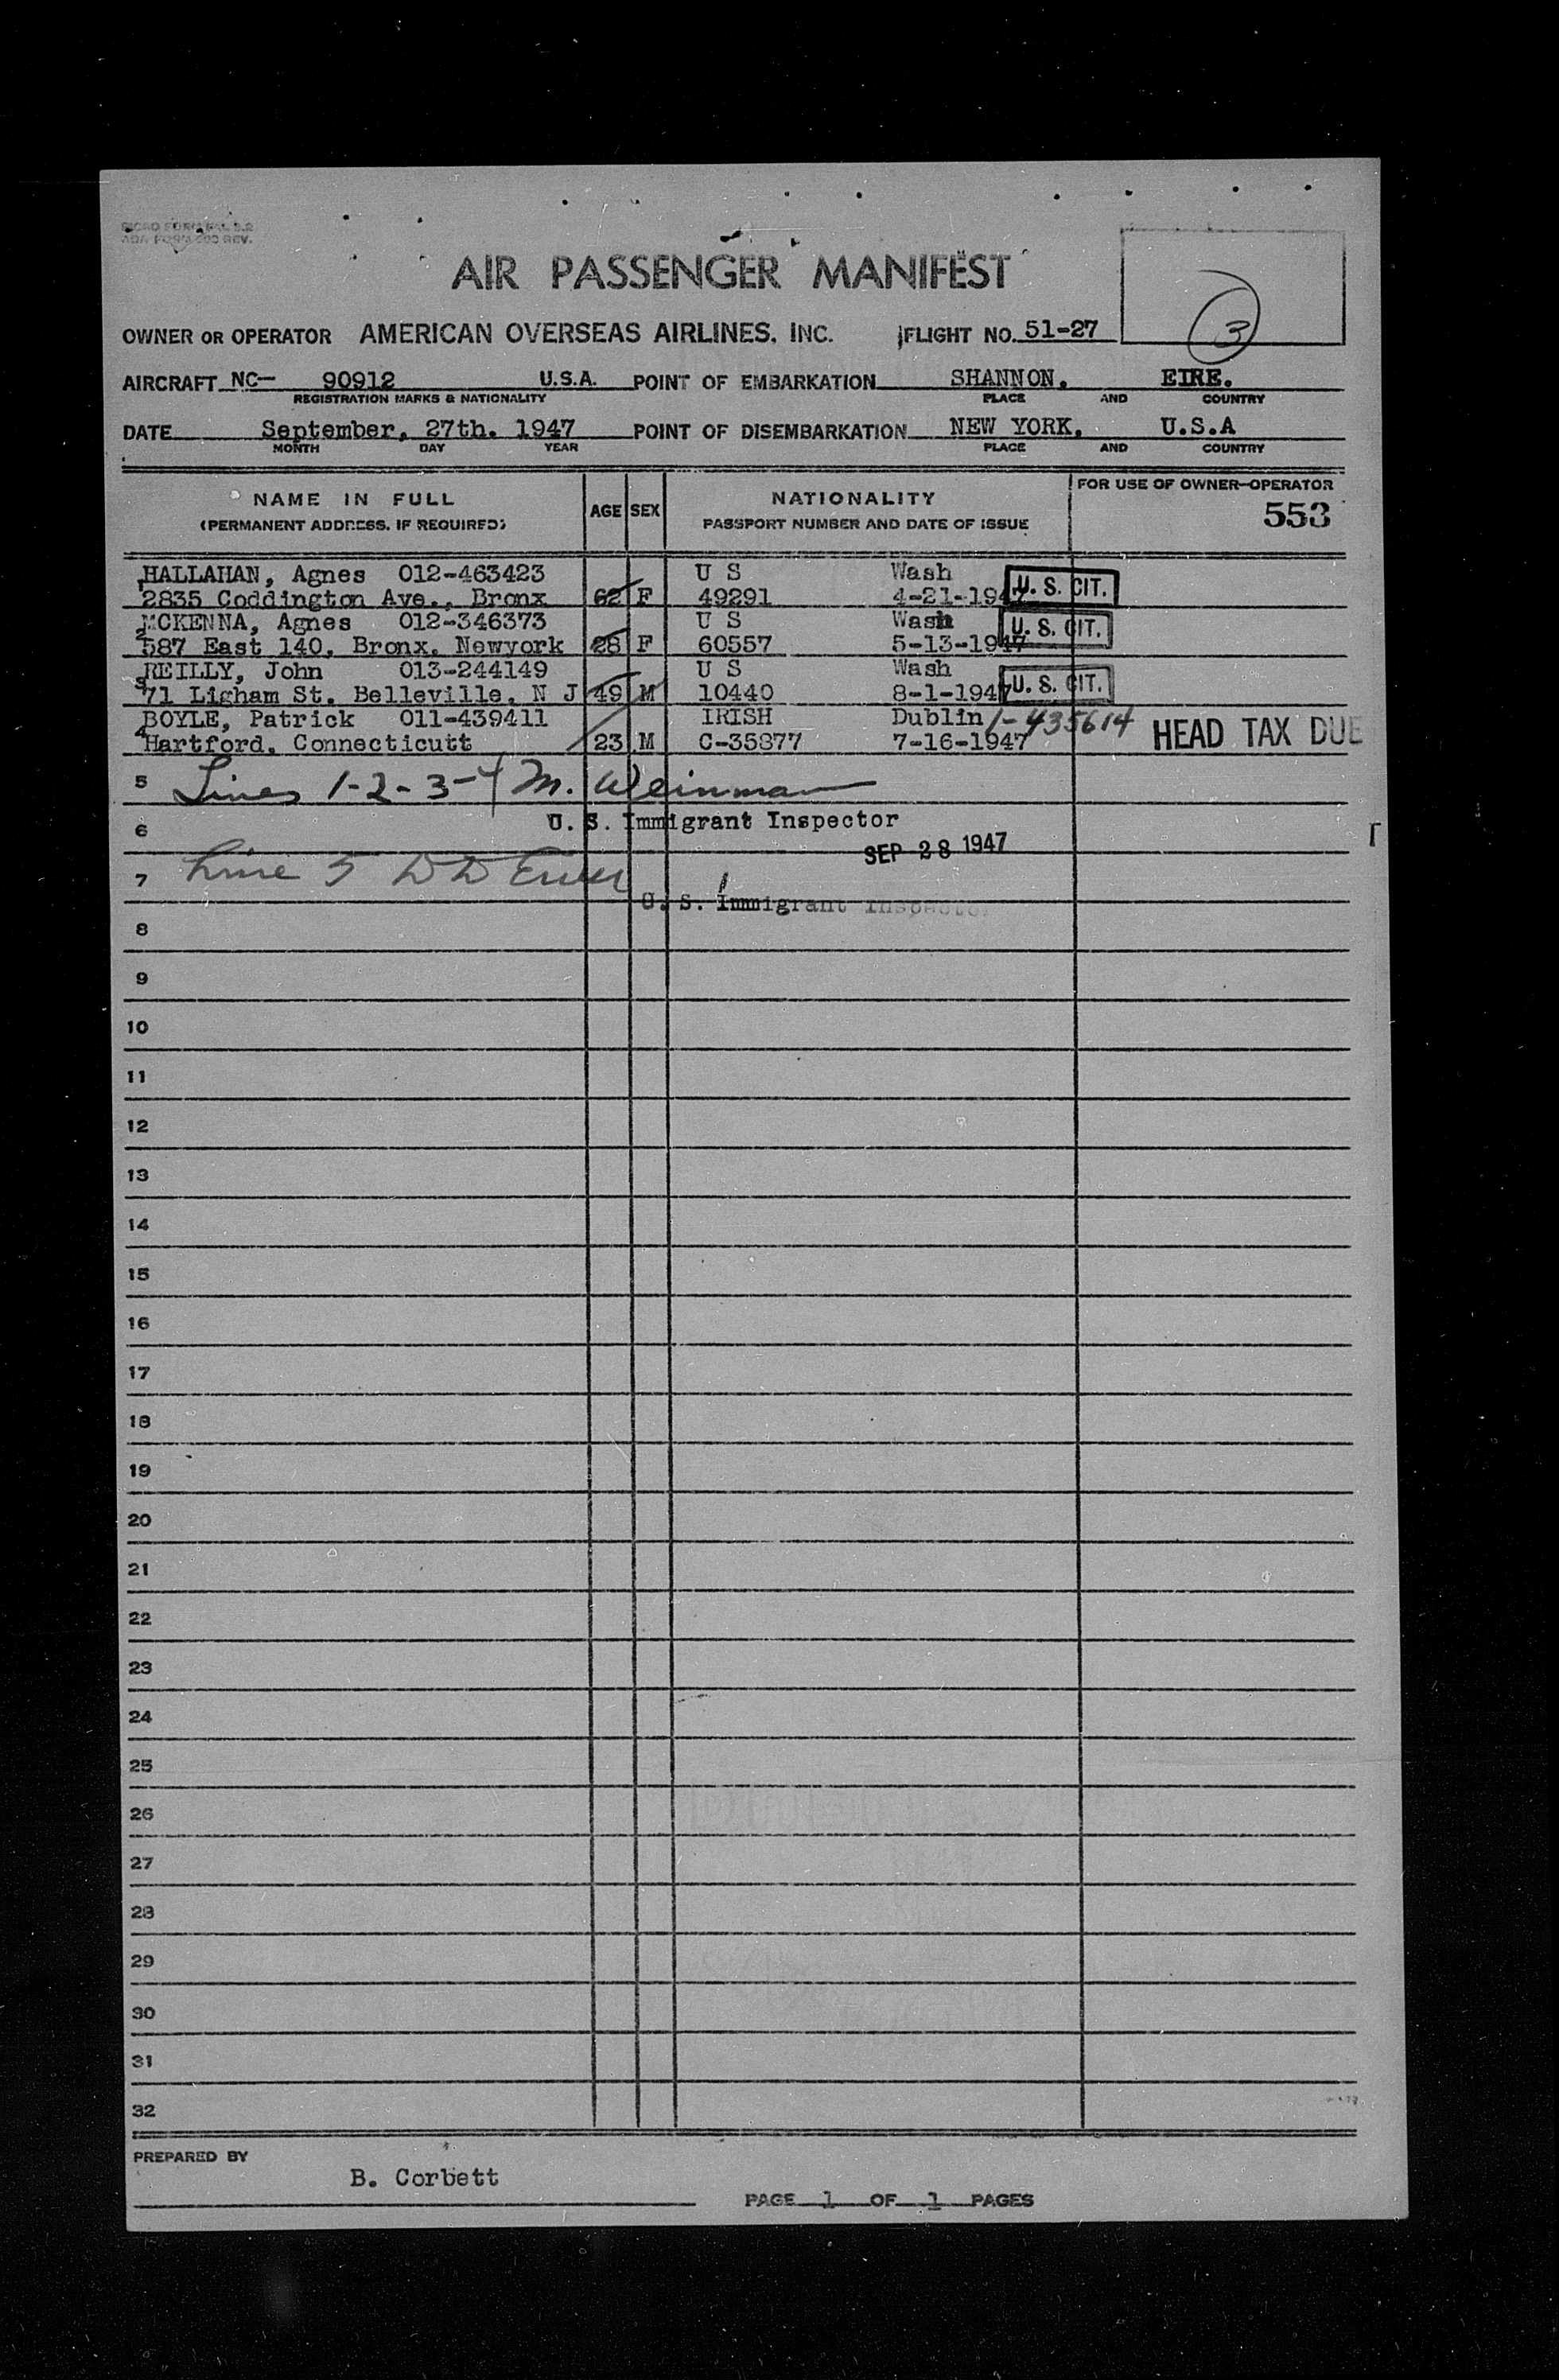 AIR PASSENGER MANIFEST
3
OWNER OR OPERATOR AMERICAN OVERSEAS AIRLINES, INC. FLIGHT NO. 51-27
AIRCRAFT NC- 90912 U.S.A. POINT OF EMBARKATION SHANNON. EIRE.
REGISTRATION MARKS & NATIONALITY PLACE AND COUNTRY
DATE September, 27th. 1947 POINT OF DISEMBARKATION NEW YORK. U.S.A
MONTH DAY YEAR PLACE AND COUNTRY
NAME IN FULL AGE SEX NATIONALITY FOR USE OF OWNER-OPERATOR
(PERMANENT ADDRESS, IF REQUIRED) PASSPORT NUMBER AND DATE OF ISSUE 553
HALLAHAN, Agnes 012-463423 U S Wash U. S. CIT.
2835 Coddington Ave., Bronx 62 F 49291 4-21-1947
MCKENNA, Agnes 012-346373 U S Wash U. S. CIT.
587 East 140, Bronx. Newyork 28 F 60557 5-13-1947
REILLY, John 013-244149 U S Wash U. S. CIT.
71 Ligham St. Belleville. N J 49 M 10440 8-1-1947
BOYLE, Patrick 011-439411 IRISH Dublin 1-435614 HEAD TAX DUE
4 Hartford, Connecticutt 23 M C-35877 7-16-1947
5 Lines 1-2-3-4 M. Weinman
6 U. S. Immigrant Inspector
SEP 28 1947
7 Line 5 D D
U. S. Immigrant Inspector
8
9
10
11
12
13
14
15
16
17
18
19
20
21
22
23
24
25
26
27
28
29
30
31
32
PREPARED BY
B. Corbett
PAGE 1 OF 1 PAGES